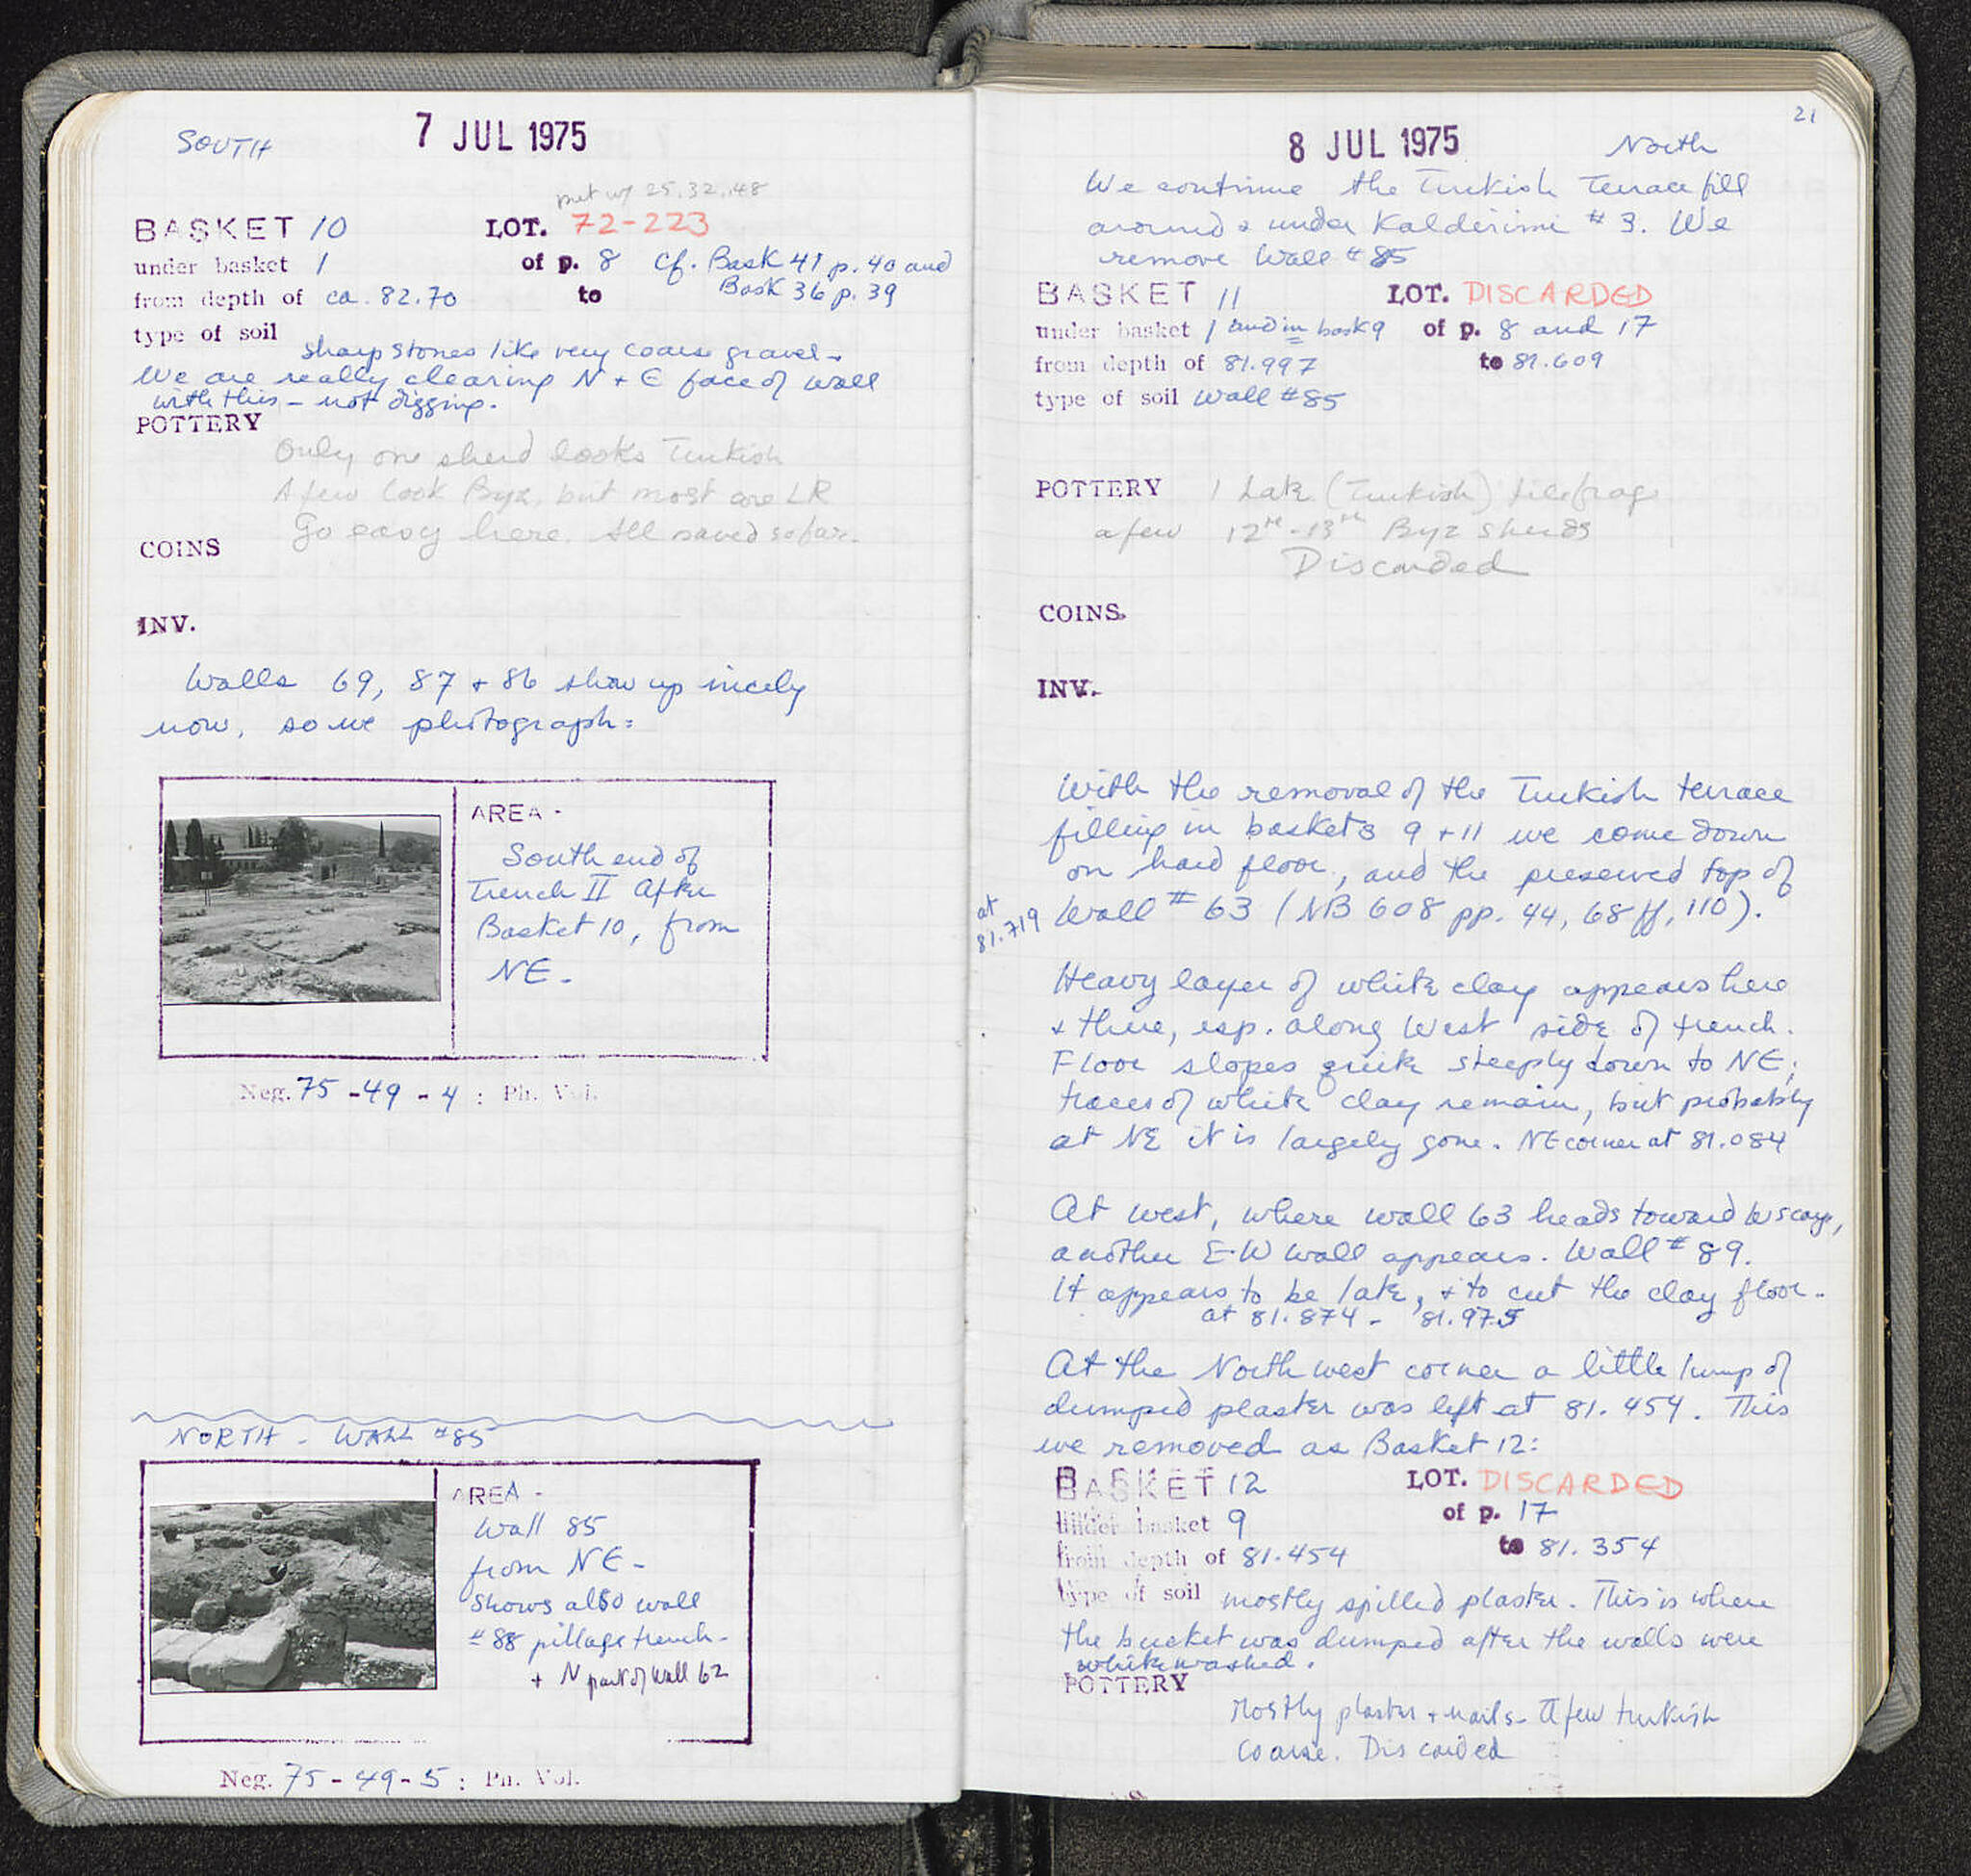 SOUTH
7 JUL 1975
put w/ 25, 32, 48
BASKET 10 LOT. 72-223
under basket 1 of p. 8 cf. Bask 41 p. 40 and
Bask 36 p. 39
from depth of ca. 82.70 to
type of soil sharp stones like very coarse gravel -
We are really clearing N + E face of wall
with this - not digging.
POTTERY
Only one sherd looks Turkish
A few look Byz, but most are LR
Go easy here. All saved so far.
COINS
INV.
Walls 69, 87 + 86 show up nicely
now, so we photograph:
AREA -
South end of
Trench II After
Basket 10, from
NE -
Neg. 75-49-4 : Ph. Vol.
NORTH - WALL #85
AREA -
Wall 85
from NE -
Shows also wall
#88 pillage trench -
+ N part of wall 62
Neg. 75-49-5 : Ph. Vol.
21
8 JUL 1975 North
We continue the Turkish Terrace fill
around & under Kalderimi #3. We
remove Wall #85
BASKET 11 LOT. DISCARDED
under basket 1 and in bask 9 of p. 8 and 17
from depth of 81.997 to 81.609
type of soil Wall #85
POTTERY 1 Late (Turkish) tile frag
a few 12th-13th Byz sherds
Discarded
COINS.
INV.
With the removal of the Turkish terrace
filling in baskets 9 + 11 we come down
on hard floor, and the preserved top of
at 81.719
Wall #63 (NB 608 pp. 44, 68ff, 110).
Heavy layer of white clay appears here
& there, esp. along West side of trench.
Floor slopes quite steeply down to NE;
traces of white clay remain, but probably
at NE it is largely gone. NE corner at 81.084
At west, where wall 63 heads toward W scarp,
another E-W wall appears. Wall #89.
It appears to be late, & to cut the clay floor -
at 81.874 - 81.975
At the Northwest corner a little lump of
dumped plaster was left at 81.454. This
we removed as Basket 12:
BASKET 12 LOT. DISCARDED
under basket 9 of p. 17
from depth of 81.454 to 81.354
type of soil mostly spilled plaster. This is where
the bucket was dumped after the walls were
whitewashed.
POTTERY
Mostly plaster + nails - A few turkish
coarse. Discarded